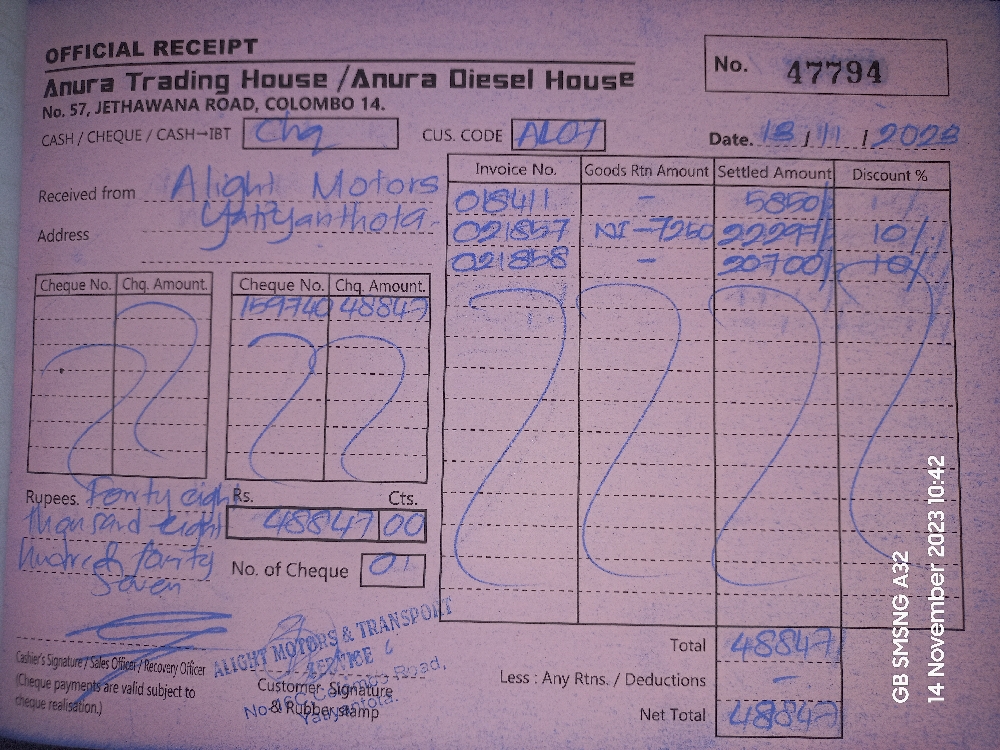 OFFICIAL RECEIPT
Anura Trading House /Anura Diesel House
No. 57, JETHAWANA ROAD, COLOMBO 14.
No. 47794
CASH / CHEQUE / CASH→IBT Chq
CUS. CODE AL07
Date. 13 / 11 / 2023
Received from Alight Motors
Address Yatiyanthota-
Invoice No. Goods Rtn Amount Settled Amount Discount %
018411 - 5850/
021857 NI-7260 22297/ 10/.
021858 - 20700/ 10/.
Cheque No. Chq. Amount.
Cheque No. Chq. Amount.
159740 48847
Rupees. Fourty eigh
thousand eight
hundred fourty
Seven
Rs. Cts.
48847 00
No. of Cheque 01
Cashier's Signature / Sales Officer / Recovery Officer
(Cheque payments are valid subject to
cheque realisation.)
ALIGHT MOTORS & TRANSPORT
SERVICE
Road,
Yatiyantota.
Customer Signature
& Rubber stamp
Total 48847
Less : Any Rtns. / Deductions -
Net Total 48847
GB SMSNG A32
14 November 2023 10:42